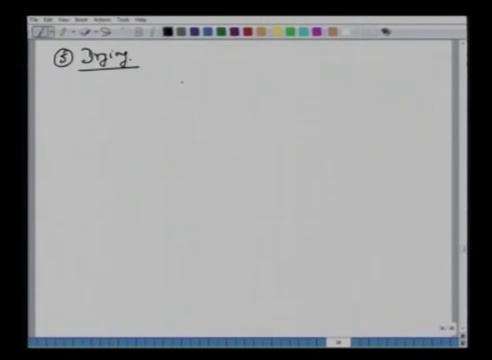 File Edit View Insert Actions Tools Help
⑤ Drying.